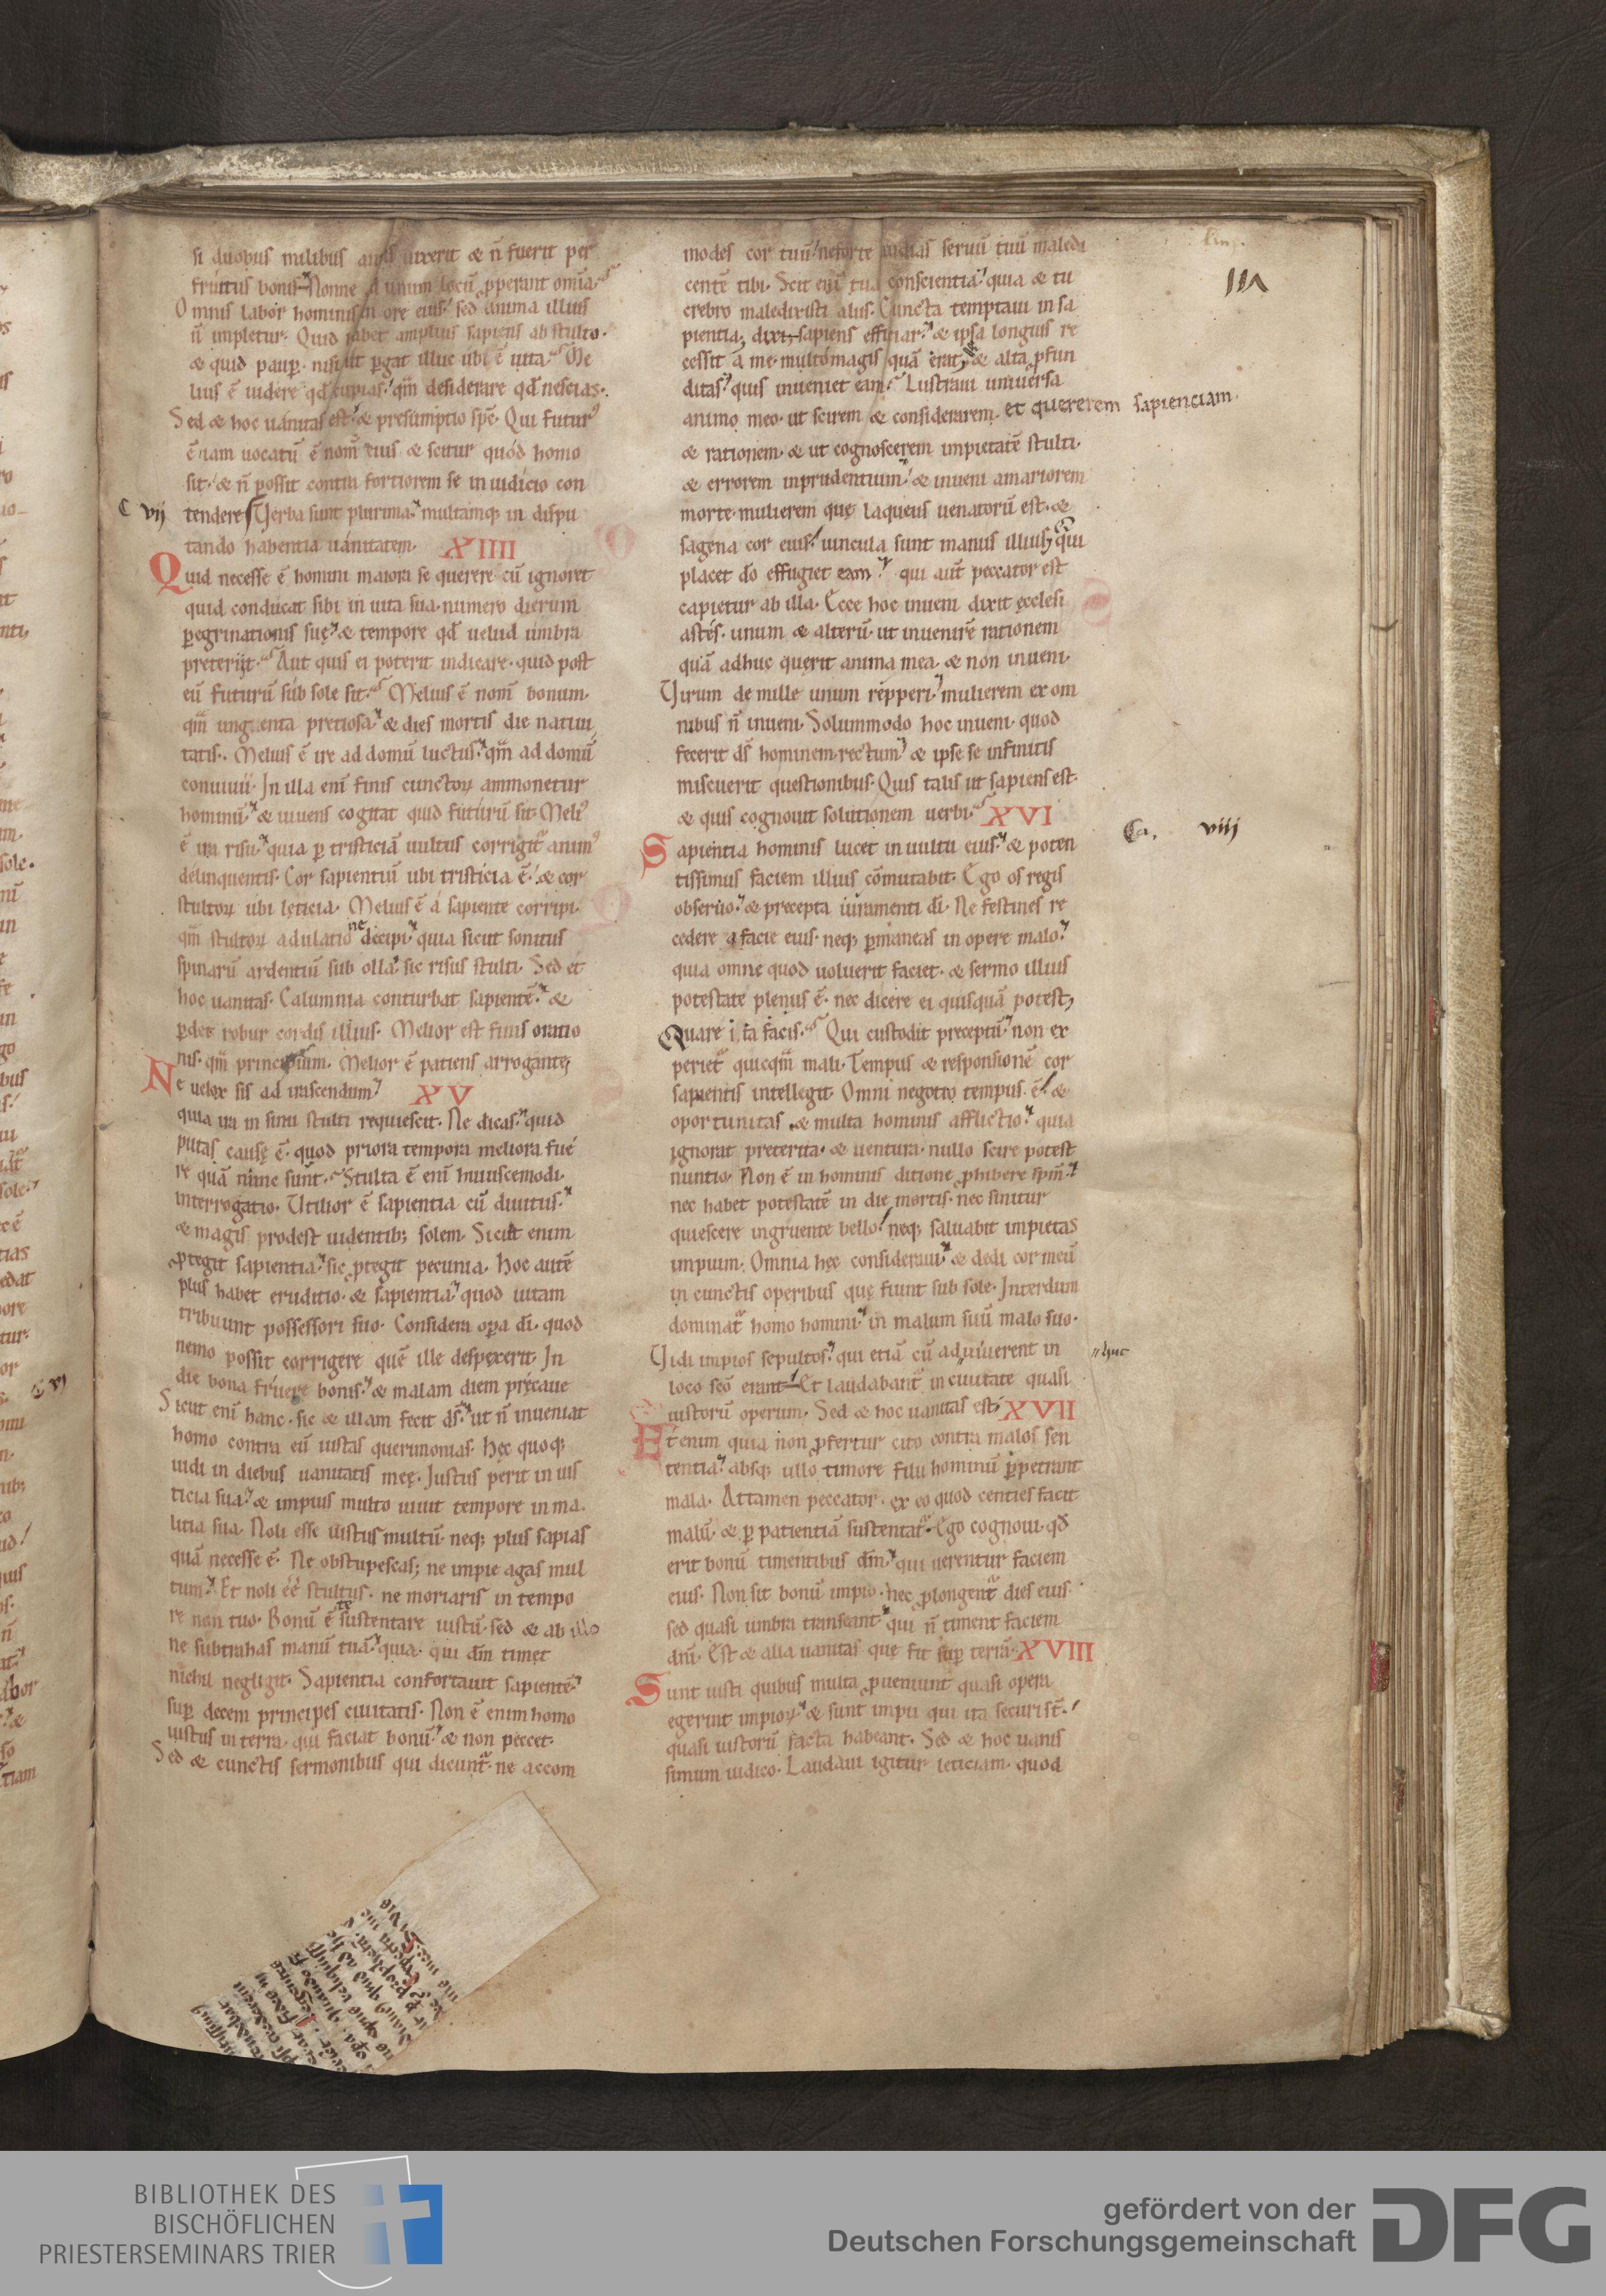 si duobus milibus annis uixerit & n̄ fuerit per
fruitus bonis. Nonne ad unum locū pperant omīa.
Omnis labor hominis in ore eius. sed anima illius
n̄ impletur. Quid habet amplius sapiens ab stulto.
& quid paup. nisi ut pgat illuc ubi ē uita. Me
lius ē uidere qd̄ cupias. qm̄ desiderare qd̄ nescias.
Sed & hoc uanitas est. & presumptio spē. Qui futurꝰ
ē iam uocatū ē nom̄ eius & scitur quód homo
sit. & n̄ possit contra fortiorem se in iudicio con
C vij
tendere Uerba sunt plurima. multamq; in dispu
tando habentia uánitatem. XIIII
Quid necesse ē homini maiora se querere cū ignoret
quid conducat sibi in uita sua. numero dierum
pegrinationis suę. & tempore qd̄ uelud umbra
preterijt. Aut quis ei poterit indicare. quid post
eū futurū sub sole sit. Melius ē nom̄ bonum.
qm̄ ungenta pretiosa. & dies mortis die natiui
tatis. Melius ē ire ad domū luctus. qm̄ ad domū
conuiuii. In illa eni finis cunctoꝝ ammonetur
hominū. & uiuens cogitat quid futurū sit. Meliꝰ
ē ira risu. quia p tristiciā uultus corrigit̄ animꝰ
delinquentis. Cor sapientiū ubi tristicia ē. & cor
stultoꝝ ubi lęticia. Melius ē á sapiente corripi.
qm̄ stultoꝝ adulatione decipi. quia sicut sonitus
spinarū ardentiū sub olla. sic risus stulti. Sed et
hoc uanitas. Calumnia conturbat sapientē. &
pdet robur cordis illius. Melior est finis oratio
nis. qm̄ principium. Melior ē patiens arrogante;
Ne uelox sis ad irascendum. XV
quia ira in sinu stulti requiescit. Ne dicas. quid
putas causę ē. quod priora tempora meliora fué
re quā nunc sunt. Stulta ē enī huiuscemodi.
interrogatio. Utilior ē sapientia cū diuitiis.
& magis prodest uidentib; solem. Sicut enim
ptegit sapientia. sic ptegit pecunia. Hoc autē
plus habet eruditio. & sapientia. quod uitam
tribuunt possessori suo. Considera opa di. quod
nemo possit corrigere quē ille despexerit. In
die bona fruere bonis. & malam diem pręcaue
Sicut enī hanc. sic & illam fecit ds. ut n̄ inueniat
homo contra eū iustas querimonias. Hęc quoq;
uidi in diebus uanitatis meę. Justus perit in ius
ticia sua. & impius multo uiuit tempore in ma.
litia sua. Noli esse iustus multū. neq; plus sapias
quā necesse ē. Ne obstupescas; ne impie agas mul
tum. Et noli éé stultus. ne moriaris in tempo
re non tuo. Bonū ē te sustentare iustū. sed & ab illo
ne subtrahas manū tuā. quia. qui dm̄ timet
nichil negligit. Sapientia confortauit sapientē.
sup decem principes ciuitatis. Non ē enim homo
iustus in terra. qui faciat bonū. & non peccet.
Sed & cunctis sermonibus qui dicunt̄. ne accom
modes cor tuū. ne forte audias seruū tuū maledi
centē tibi. Scit enī tua conscientia. quia & tu
crebro maledixisti aliis. Cuncta temptaui in sa
pientia; dixi. sapiens efficiar. & ipsa longius re
cessit a me. multo magis quā erat; & alta pfun
ditas. quis inueniet eam. Lustraui uniuersa
animo meo. ut scirem & considerarem. et quererem sapienciam.
& rationem. & ut cognoscerem impietatē stulti.
& errorem inprudentium. & inueni amariorem
morte. mulierem quę laqueus uenatorū est. &
sagena cor eius. uincula sunt manus illius; Qui
placet dō effugiet eam. qui aut̄ peccator est
capietur ab illa. Ecce hoc inueni dixit ęcclesi
astés. unum & alterū. ut inuenirē rationem
quā adhuc querit anima mea. & non inueni.
Uirum de mille unum répperi. mulierem ex om
nibus n̄ inueni. Solummodo hoc inueni. quod
fecerit ds̄ hominem rectum. & ipse se infinitis
miscuerit questionibus. Quis talis ut sapiens est.
& quis cognouit solutionem uerbi. XVI
Ca. viij
Sapientia hominis lucet in uultu eius. & poten
tissimus faciem illius cōmutabit. Ego os regis
obseruo. & precepta iuramenti di. Ne festines re
cedere a facie eius. neq; pmaneas in opere malo.
quia omne quod uoluerit faciet. & sermo illius
potestate plenus ē. nec dicere ei quisquā potest;
Quare ita facis. Qui custodit preceptū. non ex
periet̄ quicqm̄ mali. Tempus & responsionē cor
sapientis intellegit. Omni negotio tempus ē. &
oportunitas & multa hominis afflictio. quia
ignorat preterita. & uentura nullo scire potest
nuntio. Non ē in hominis ditione phibere spm̄.
nec habet potestatē in die mortis. nec sinitur
quiescere ingruente bello. neq; saluabit impietas
impium. Omnia hęc consideraui. & dedi cor meū
in cunctis operibus quę fiunt sub sole. Interdum
dominat̄ homo homini. in malum suū malo suo.
Uidi impios sepultos. qui etiā cū aduiuerent in
loco scō erant. Et laudabant̄ in ciuitate quasi
iustorū operum. Sed & hoc uanitas est; XVII
Etenim quia non pfertur cito contra malos sen
tentia. absq; ullo timore filii hominū ppetrant
mala. Attamen peccator. ex eo quod centies facit
malū. & p patientiā sustentat̄. Ego cognoui. qd̄
erit bonū timentibus dm̄. qui uerentur faciem
eius. Non sit bonū impio. nec plongent̄ dies eius.
sed quasi umbra transeant. qui n̄ timent faciem
dn̄i. Est & alia uanitas quę fit sup terrā. XVIII
Sunt iusti quibus multa pueniunt quasi opera
egerint impioꝝ. & sunt impii qui ita securi st̄.
quasi iustorū facta habeant. Sed & hoc uanis
simum iudico. Laudaui igitur leticiam. quod
BIBLIOTHEK DES
BISCHÖFLICHEN
PRIESTERSEMINARS TRIER
gefördert von der
Deutschen Forschungsgemeinschaft
DFG